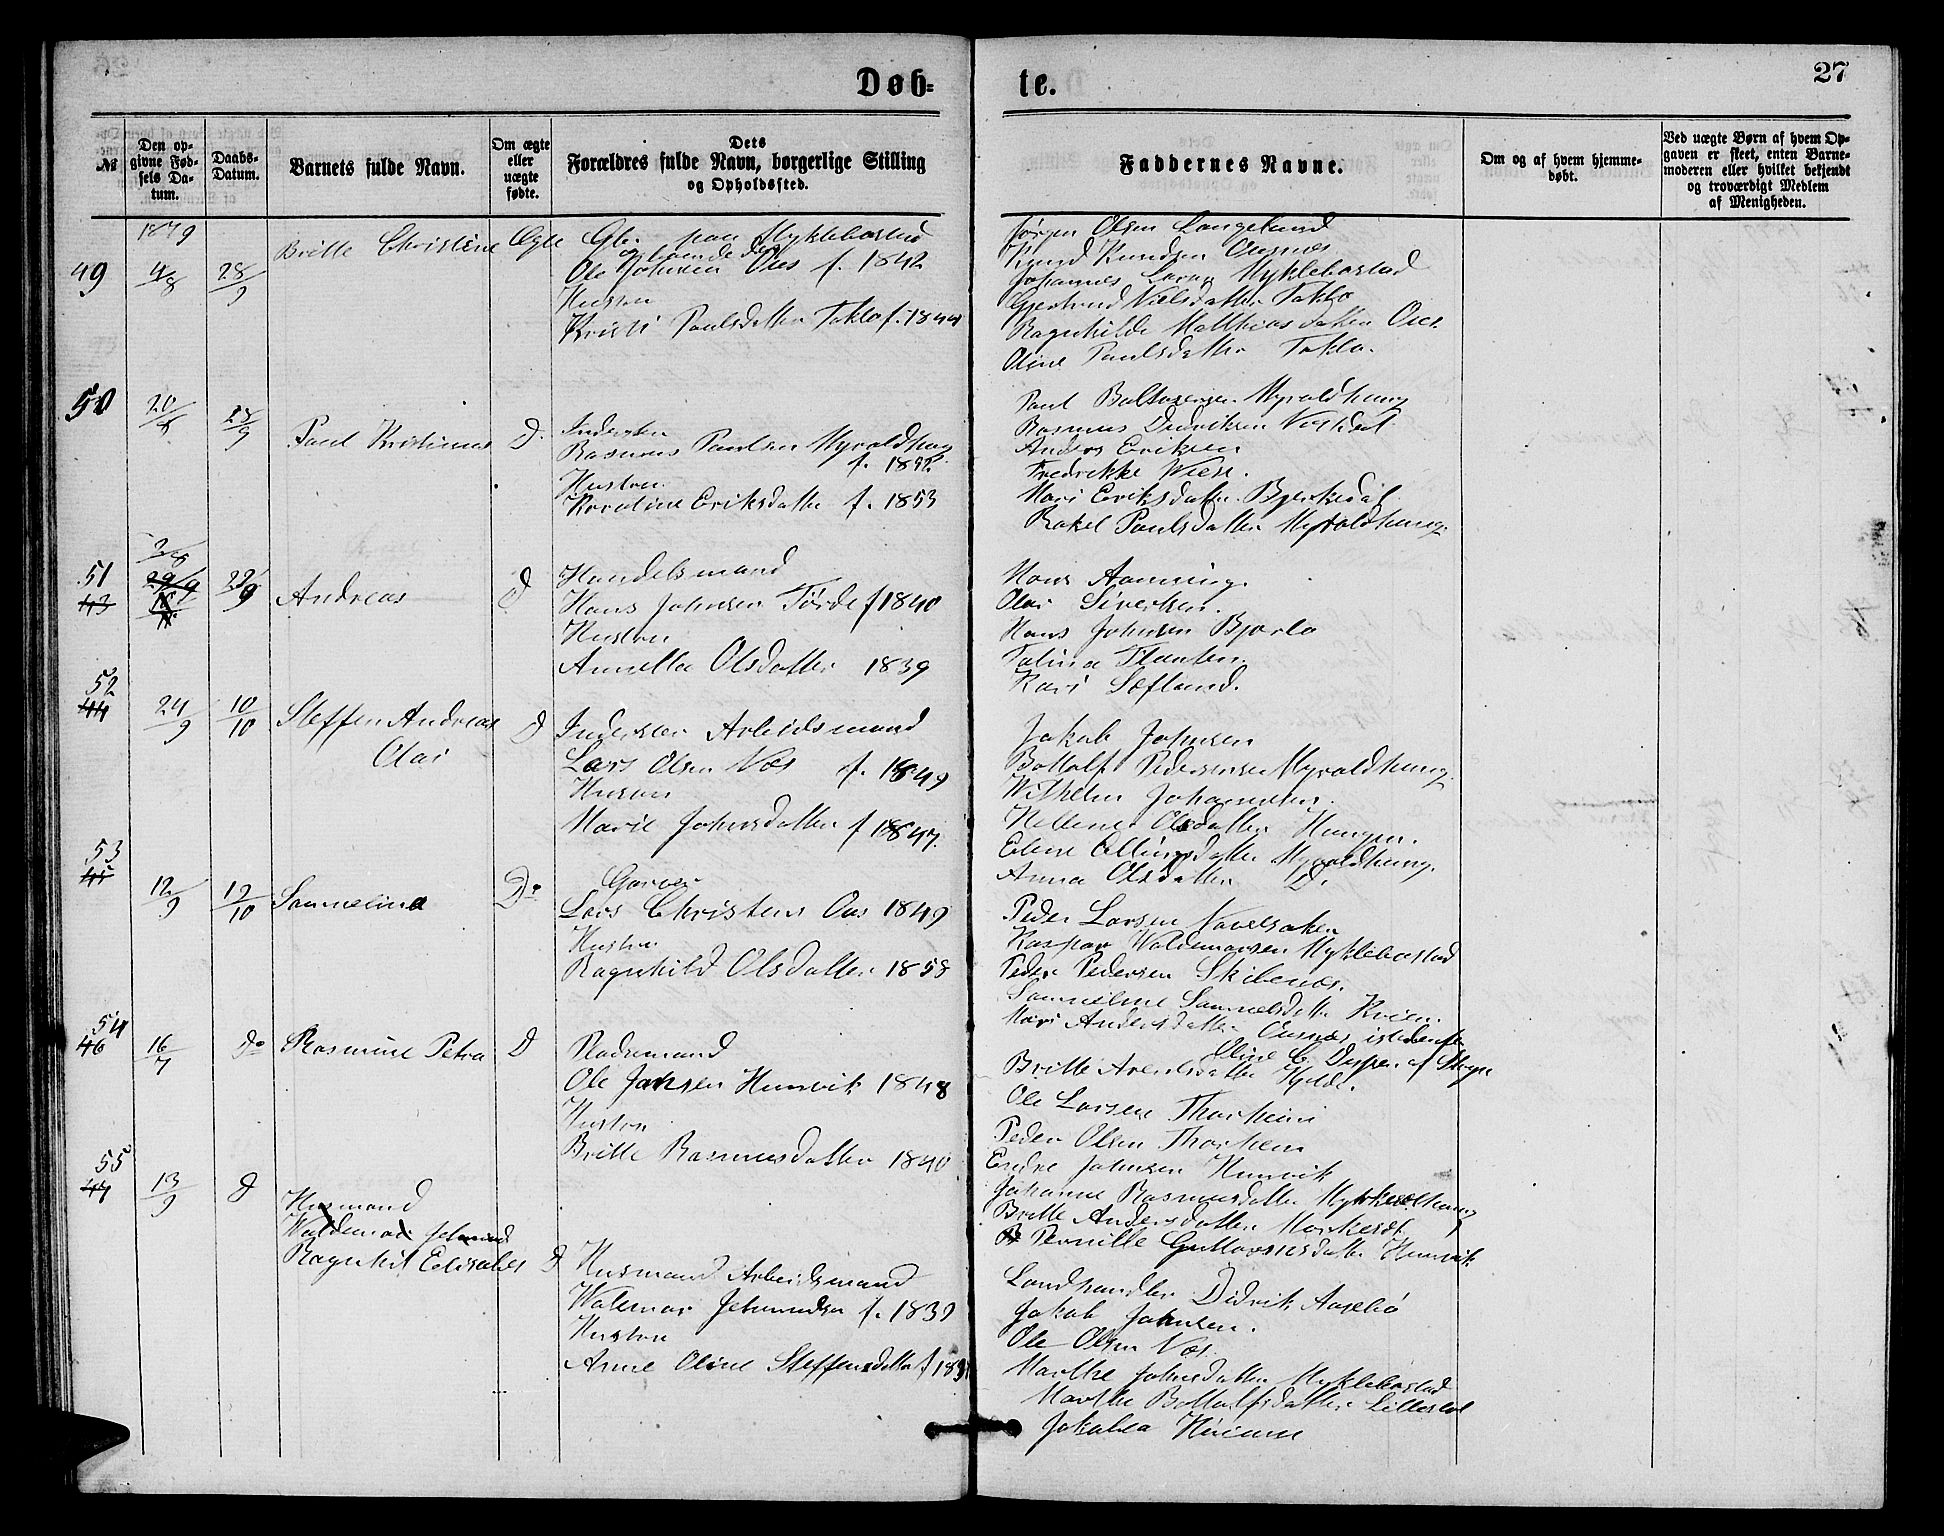 Døb-
te.
27
№
Den op-
givne Fød-
sels Da-
tum.
Daabs-
Datum.
Barnets fulde Navn.
Om ægte
eller
uægte
fødte.
Dets
Forældres fulde Navn, borgerlige Stilling
og Opholdssted.
Faddernes Navne.
Om og af hvem hjemme-
døbt.
Ved uægte Børn af hvem Op-
gaven er skeet, enten Barne-
moderen eller hvilket bekjendt
og troværdigt Medlem
af Menigheden.
1879
49
4/8
28/9
Britte Christine
Ægte
paa Myklebostad
Ole Johnsen f. 1842
Hustru
Kristi Paulsdatter Taklo f. 1844
Jørgen Olsen Langelund
Knud Knudsen Ousnes
Johannes Myklebostad
Gjertrud Nielsdatter Taklo
Ragnhilde Matthiasdatter Oies
Oline Paulsdatter Taklo.
50
28/9
Paul Kristinus
D.
Inderster
Rasmus Paulsen Myroldhaug
Hustru
Karoline Eriksdatter f. 1853
Paul Baltazersen Myroldhaug
Rasmus Didriksen
Anders Eriksen
Fredrikke Wiese.
Mari Eriksdatter Bjerkedal
Rakel Paulsdatter Myroldhaug.
51
43
29/9
Andreas
D
Handelsmand
Hans Johnsen Førde f 1840
Hustru
Olsdatter 1839
Hans
Olai Sivertsen.
Hans Johnsen Bjørlo
Kari Sefland.
52
44
24/9
10/10
Steffen Andreas
Olai
D
Inderster Arbeidsmand
Lars Olsen Nos f. 1849
Hustru
Marie Johnsdatter f 1847
Jakob Johnsen
Bottolf Pedersen Myroldhaug
Wilhelm Johannesen.
Hellene Olsdatter Haugen.
Eline Ellingsdatter Myroldhaug.
Anna Olsdatter D.
53
45
12/9
12/10
Samueline
Do
Garver
Lars Christens Oas 1849
Hustru
Ragnhild Olsdatter 1858
Peder Larsen Navelsaker
Kaspar Waldemarsen Myklebostad
Peder Pedersen Skibenes.
Samueline Samuelsdatter Kvien.
Mari Andersdatter Ousnes istedenfor
Oline C. af Stryn
54
46
16/7
Do
Rasmine Petra
D
Rademand
Ole Jansen Hunvik 1848
Hustru
Britte Rasmusdatter 1840
Britte Arentsdatter Hjelle.
Ole Larsen Thorheim
Peder Olsen Thorheim
Endre Johnsen Hunvik
Johanne Rasmusdatter
Britte Andersdatter
Pernille Gustavusdatter Hunvik
55
47
13/9
D
Husmand
Ragnhil Elisabet
D
Husmand Arbeidsmand
Walemar Jetmundsen f. 1839
Hustru
Anne Oline Steffensdatter
Landhandler Didrik Aaselid
Jakob Johnsen.
Ole Olsen Nos.
Marthe Johnsdatter Myklebostad
Marthe Bottolfsdatter
Jakobea